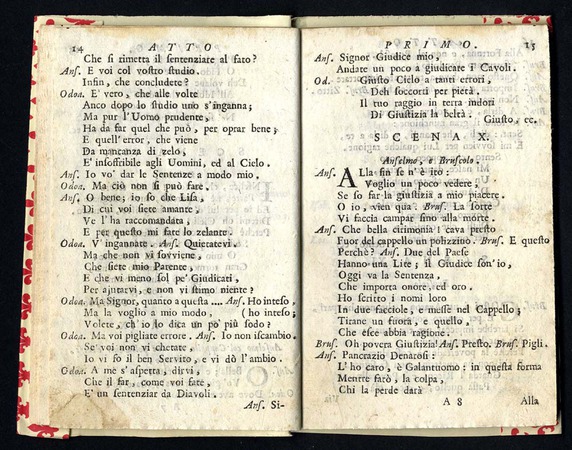 14 ATTO
Che si rimetta il sentenziare al fato?
Ans. E voi col vostro studio.
Infin, che concludete?
Odoa. E' vero, che alle volte
Anco dopo lo studio uno s'inganna;
Ma pur l'Uomo prudente,
Ha da far quel che può, per oprar bene;
E quell' error, che viene
Da mancanza di zelo,
E' insoffribile agli Uomini, ed al Cielo.
Ans. Io vo' dar le Sentenze a modo mio.
Odoa. Ma ciò non si può fare.
Ans. O bene; io so che Lisa,
Di cui voi siete amante,
Ve l'ha raccomandata;
E per questo mi fate lo zelante.
Odoa. V'ingannate. Ans. Quietatevi.
Ma che non vi sovviene,
Che siete mio Parente,
E che vi meno sol pe' Giudicati,
Per ajutarvi, e non vi stimo niente?
Odoa. Ma Signor, quanto a questa .... Ans. Ho inteso,
Ma la voglio a mio modo, (ho inteso;
Volete, ch'io lo dica un po' più sodo?
Odoa. Ma voi pigliate errore. Ans. Io non iscambio.
Se voi non vi chetate
Io vi fo il ben Servito, e vi dò l'ambio.
Odoa. A me s'aspetta, dirvi,
Che il far, come voi fate,
E' un sentenziar da Diavoli.
Ans. Si-
PRIMO. 15
Ans. Signor Giudice mio,
Andate un poco a giudicare i Cavoli.
Od. Giusto Cielo a tanti errori,
Deh soccorri per pietà,
Il tuo raggio in terra indori
Di Giustizia la beltà.
Giusto, ec.
SCENA X.
Anselmo, e Bruscolo.
Ans. Alla fin se n'è ito:
Voglio un poco vedere,
Se so far la giustizia a mio piacere.
O io, vien qua. Brus. La sorte
Vi faccia campar sino alla morte.
Ans. Che bella cirimonia! cava presto
Fuor del cappello un polizzino. Brus. E questo
Perchè? Ans. Due del Paese
Hanno una Lite; il Giudice son' io,
Oggi va la Sentenza,
Che importa onore, ed oro.
Ho scritto i nomi loro
In due facciole, e messe nel Cappello;
Tirane un fuora, e quello,
Che esce abbia ragione.
Brus. Oh povera Giustizia! Ans. Presto. Brus. Pigli.
Ans. Pancrazio Denarosi:
L'ho caro, è Galantuomo: in questa forma
Mentre sarò, la colpa,
Chi la perde darà
A 8 Alla